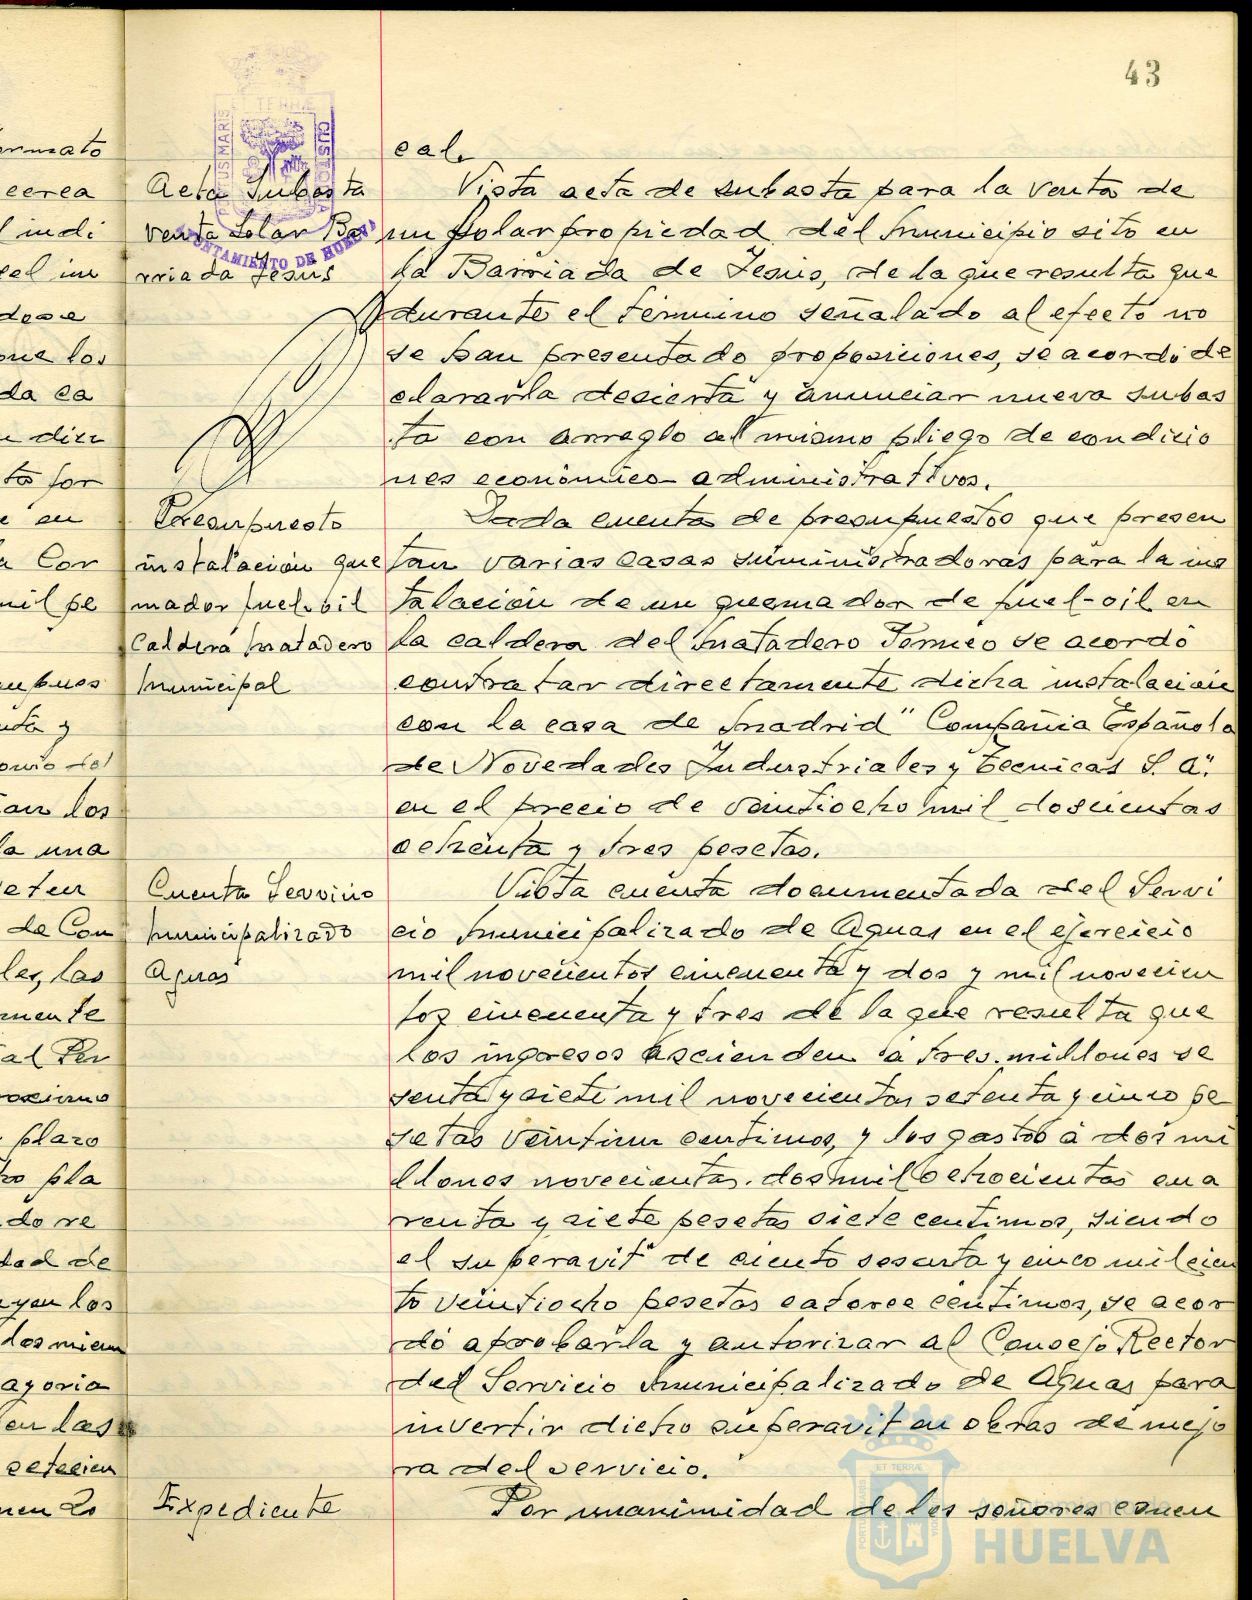 43
ormato
cerca
l indi
gel im
dose
que los
da ca
u dieu
to for
e en
a Cor
mil pe
supues
nta y
onio del
tan los
la una
de Con
les, las
mente
ial Per
plazo
ro pla
do re
dad de
uyen los
dos miem
ayoria
en las
setecien
Acta Subasta
venta Solar Ba
rriada Jesus
Presupuesto
instalación que
mador fuel-oil
Caldera Matadero
Municipal
Cuenta Servicio
Municipalizado
Aguas
Expediente
ET TERRÆ
PORTUS MARIS
CUSTODIA
AYUNTAMIENTO DE HUELVA
cal.
Vista acta de subasta para la venta de
un solar propiedad del Municipio sito en
la Barriada de Jesus, de la que resulta que
durante el término señalado al efecto no
se han presentado proposiciones, se acordó de
clararla desierta y anunciar nueva subas
ta con arreglo al mismo pliego de condicio
nes económico-administrativos.
Dada cuenta de presupuestos que presen
tan varias casas suministradoras para la ins
talación de un quemador de fuel-oil en
la caldera del Matadero Termico se acordó
contratar directamente dicha instalación
con la casa de Madrid "Compañia Española
de Novedades Industriales y Tecnicas S. A."
en el precio de veintiocho mil doscientas
ochenta y tres pesetas.
Vista cuenta documentada del Servi
cio Municipalizado de Aguas en el ejercicio
mil novecientos cincuenta y dos y mil novecien
tos cincuenta y tres de la que resulta que
los ingresos ascienden a tres millones se
senta y siete mil novecientas setenta y cinco pe
setas veintiun centimos, y los gastos a dos mi
llones novecientas dos mil ochocientas cua
renta y siete pesetas siete centimos, siendo
el superavit de ciento sesenta y cinco mil cien
to veintiocho pesetas catorce centimos, se acor
dó aprobarla y autorizar al Consejo Rector
del Servicio Municipalizado de Aguas para
invertir dicho superavit en obras de mejo
ra del servicio.
Por unanimidad de los señores concu
Ayuntamiento de
HUELVA